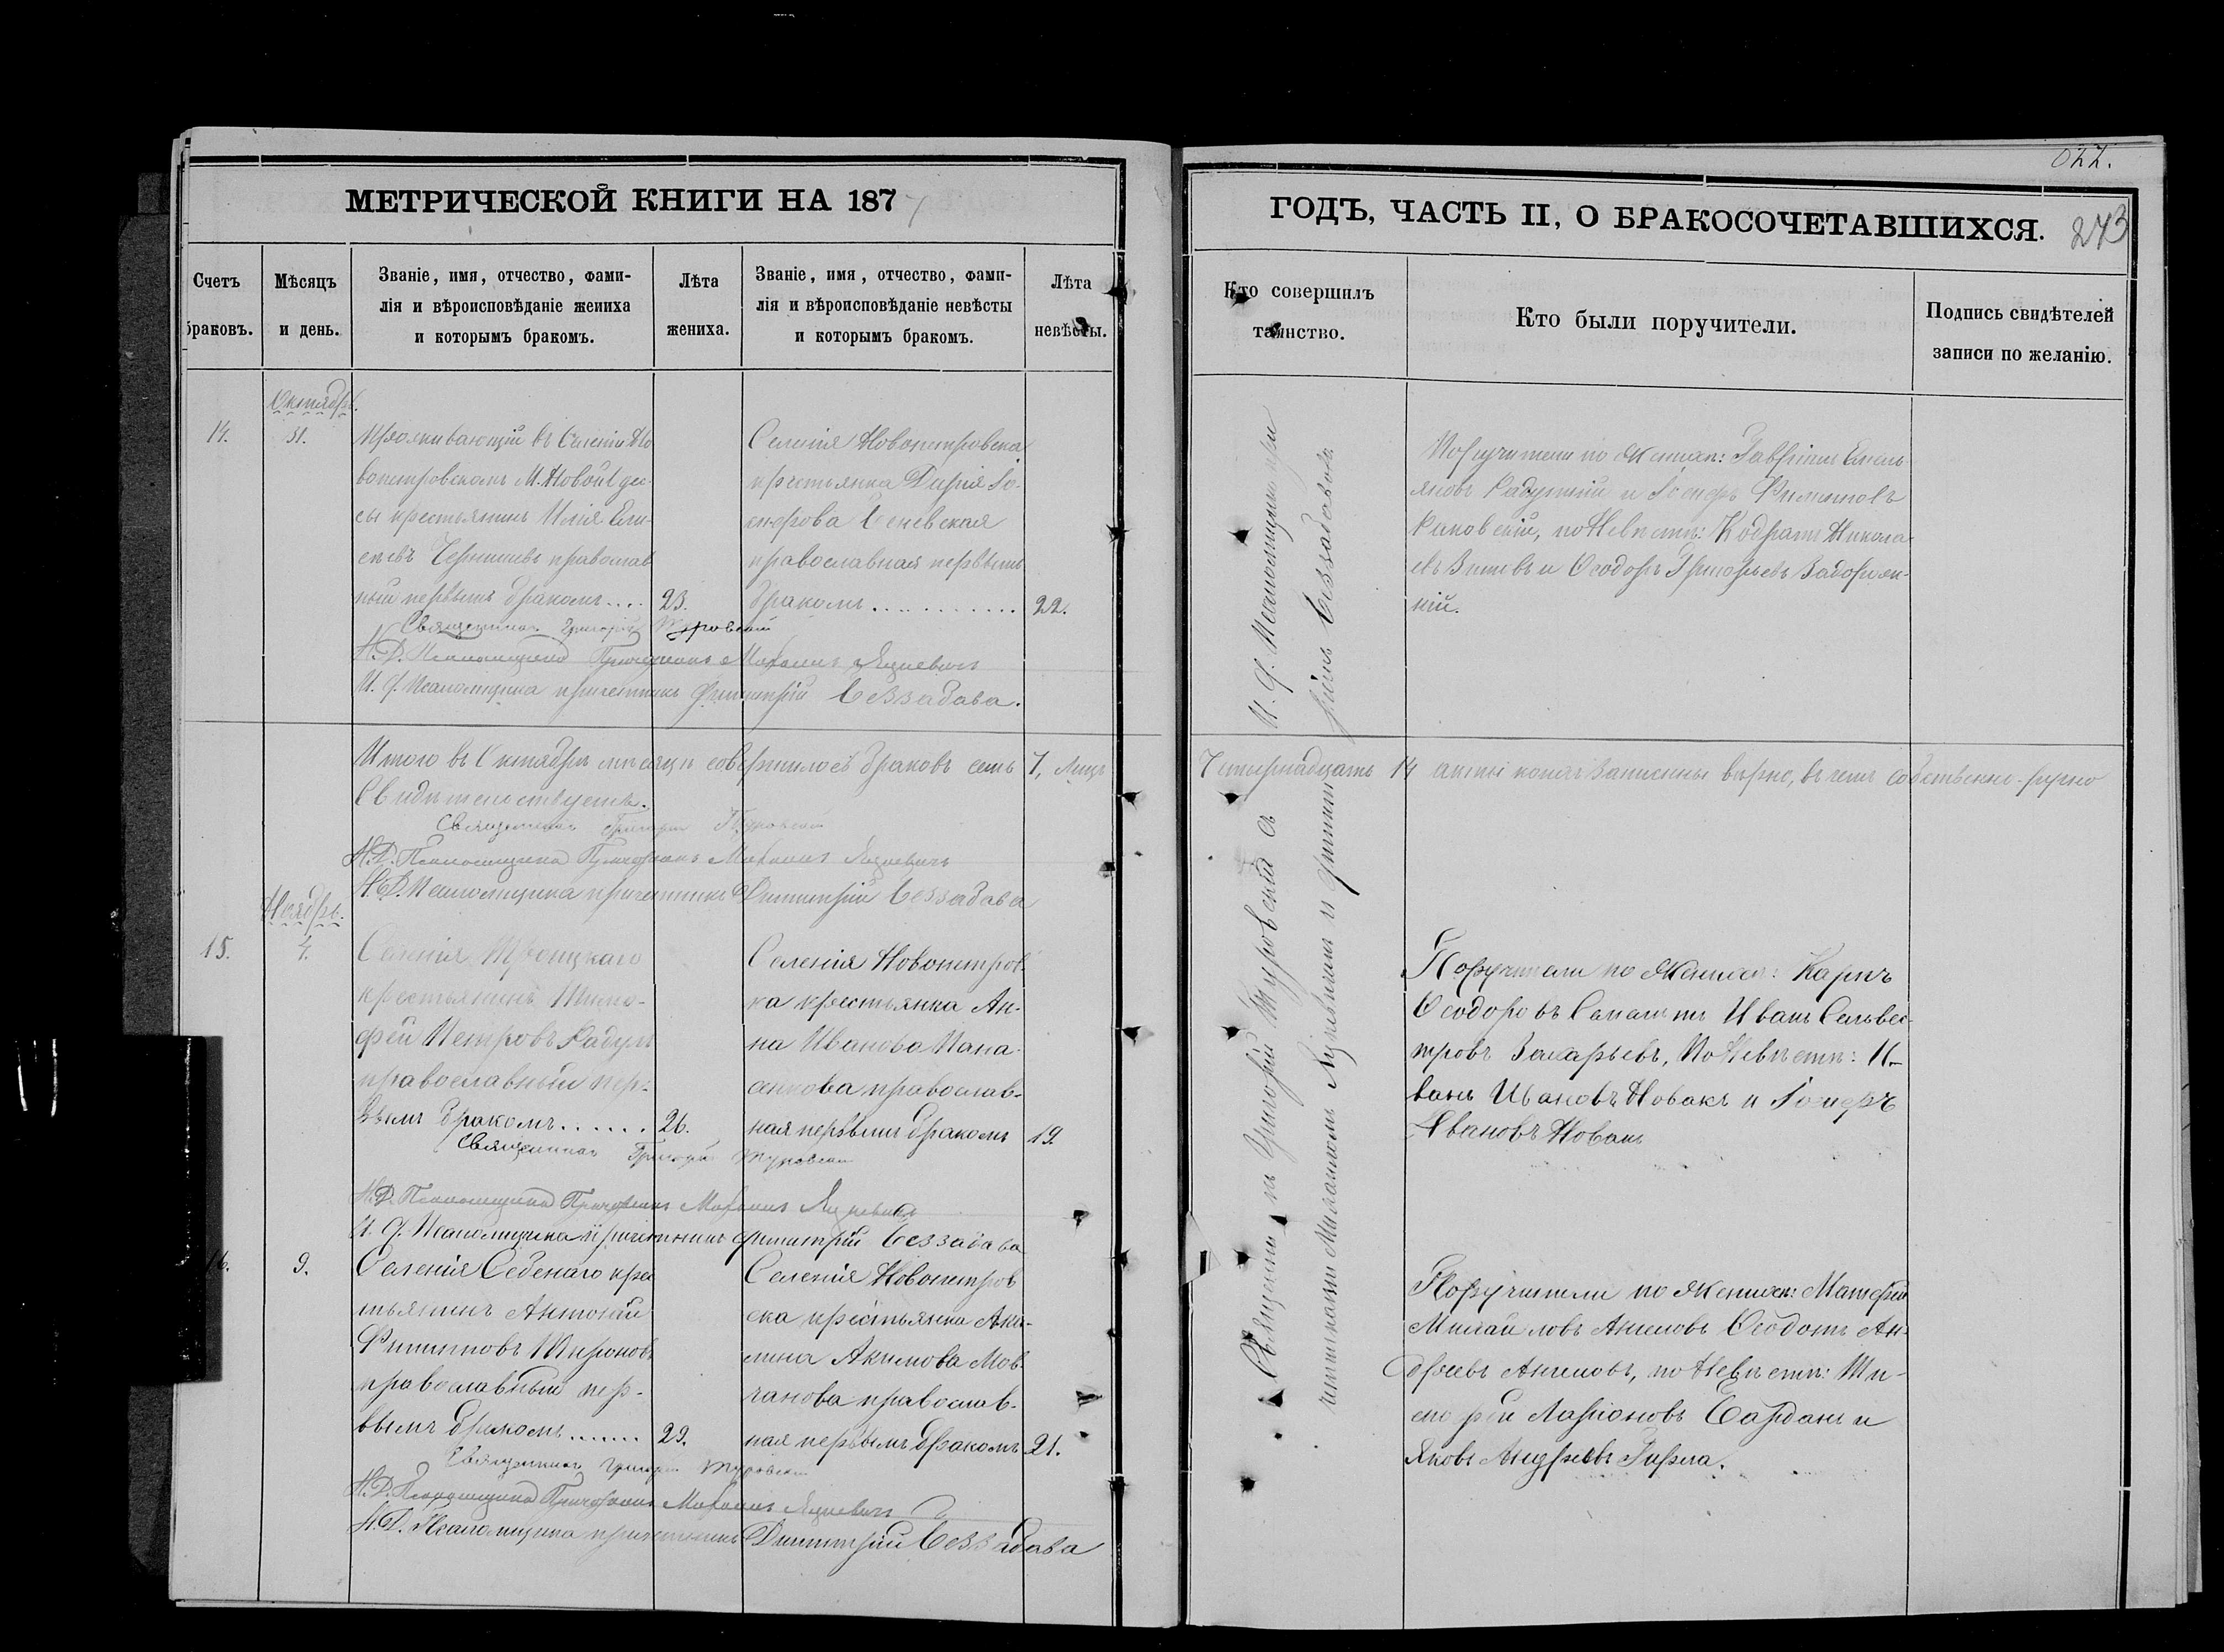 022.
МЕТРИЧЕСКОЙ КНИГИ НА 1877
ГОДЪ, ЧАСТЬ II, О БРАКОСОЧЕТАВШИХСЯ.
273
Счетъ
браковъ.
Мѣсяцъ
и день.
Званіе, имя, отчество, фами-
лія и вѣроисповѣданіе жениха
и которымъ бракомъ.
Лѣта
жениха.
Званіе, имя, отчество, фами-
лія и вѣроисповѣданіе невѣсты
и которымъ бракомъ.
Лѣта
невѣсты.
Кто совершилъ
таинство.
Кто были поручители.
Подпись свидѣтелей
записи по желанію.
Октябрь.
14.
31.
Проживающій въ Селеніи Но
вопетровскомъ М. Новой Одес-
сы крестьянинъ Илія Ели-
сѣевъ православ
ный первымъ бракомъ....
23.
Селенія Новопетровска
крестьянка Дарія Іо-
сифова
православная первымъ
бракомъ............
22.
Поручители по Женихѣ: Гавріилъ Емель
яновъ и Іосифъ Филиповъ
Раковскій, по Невѣстѣ: Никола
евъ и Ѳеодоръ Григорьевъ
кій.
Священникъ Григорій Туровскій
И. Д. Псаломщика Причетникъ Михаилъ
И. д. Псаломщика причетникъ Димитрій Беззабава.
Итого въ Октябрѣ мѣсяцѣ совершилось браковъ семь 7,
Четырнадцать 14 записаны вѣрно, въ чемъ собственно-ручно
Свидѣтельствуемъ.
Священникъ Григорій Туровскій
И. Д. Псаломщика Причетникъ Михаилъ
И. Д. Псаломщика причетникъ Димитрій Беззабава
Священникъ Григорій Туровскій съ
И. д. Псаломщика при
четниками Михаиломъ и Димит
ріемъ Беззабавою
Ноябрь.
15.
4.
Селенія Троицкаго
крестьянинъ Тимо-
фей Петровъ Радул
православный пер-
вымъ бракомъ......
26.
Селенія Новопетров-
ка крестьянка Ан-
на Иванова Пана-
сикова православ-
ная первымъ бракомъ
19.
Поручители по Женихѣ: Карпъ
Ѳеодоровъ Иванъ Сельвес-
тровъ Захарьевъ, По Невѣстѣ: И-
ванъ Ивановъ Новакъ и Іосифъ
Ивановъ Новакъ
Священникъ Григорій Туровскій
И. Д. Псаломщика Причетникъ Михаилъ
И. д. Псаломщика причетникъ Димитрій Беззабава
16.
9.
Селенія Себенаго крес
тьянинъ Антоній
Филиповъ Мироновъ
православный пер-
вымъ бракомъ.......
22.
Селенія Новопетров
ска крестьянка Аки-
лина Акимова Мов-
чанова православ-
ная первымъ бракомъ
21.
Поручители по Женихѣ: Матфей
Михайловъ Ангеловъ Ѳеодотъ Ан-
дреевъ Ангеловъ, по Невѣстѣ: Ти-
мофей Ларіоновъ и
Яковъ Андреевъ Гирла.
Священникъ Григорій Туровскій
И. Д. Псаломщика Причетникъ Михаилъ
И. Д. Псаломщика причетникъ Димитрій Беззабава